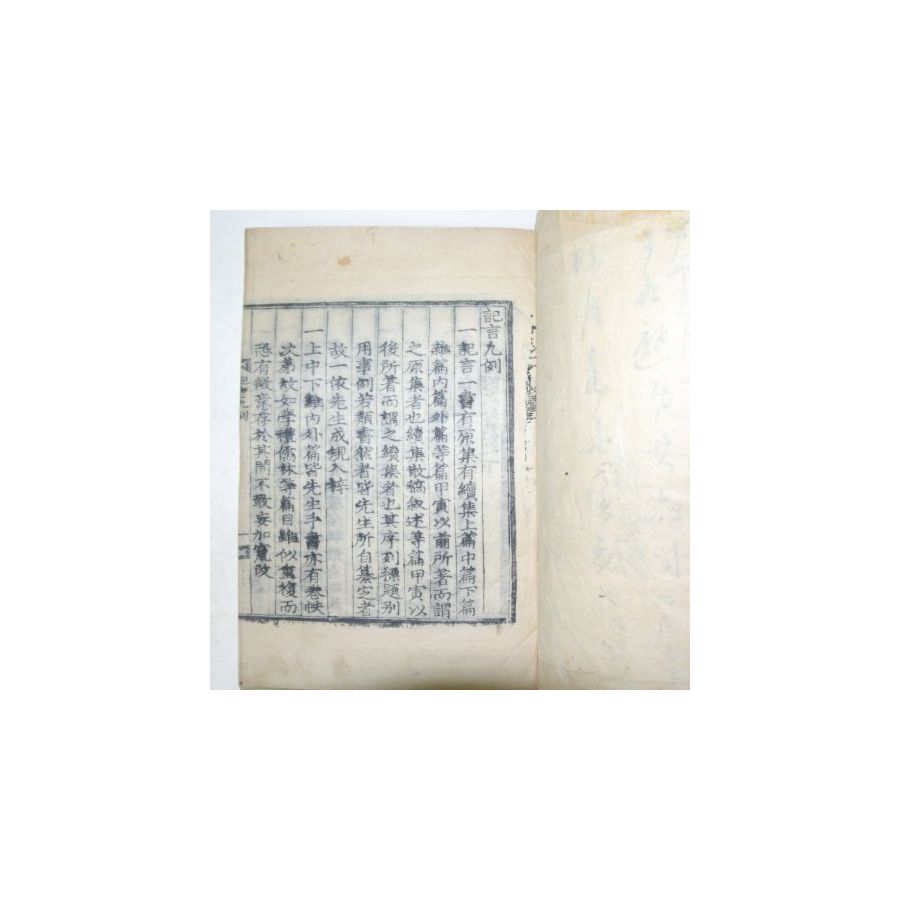 記言凡例
一記言一書有原集有續集上篇中篇下篇
雜篇內篇外篇等篇甲寅以前所著而謂
之原集者也續集散稿敘述等篇甲寅以
後所著而謂之續集者也其序列標題別
用事例若類書然者皆先生所自纂定者
故一依先生成規入梓
一上中下雜內外篇皆先生手書亦有卷帙
次第故如學禮儒林等篇目雖似重複而
恐有微意存於其間不敢妄加寬改